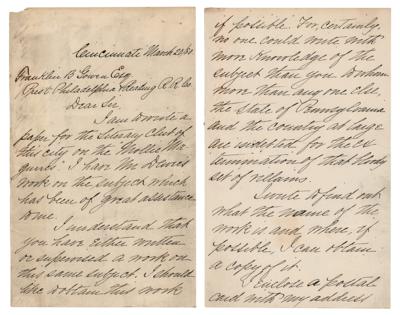 Cincinnati March 29/80
Franklin B Gowen Esq
Prest Philadelphia & Reading R. R. Co.
Dear Sir,
I am to write a
paper for the Literary Club of
this city on the "Mollie Ma-
guires". I have Mr Dewees
work on the subject which
has been of great assistance
to me.
I understand that
you have either written
or supervised a work on
this same subject. I should
like to obtain this work
if possible. For, certainly,
no one could write with
more knowledge of the
subject than you to whom
more than any one else,
the State of Pennsylvania
and the country at large
are indebted for the ex
termination of that bloody
set of villains.
I write to find out
what the name of the
work is and, where, if
possible, I can obtain
a copy of it.
I enclose a postal
card with my address